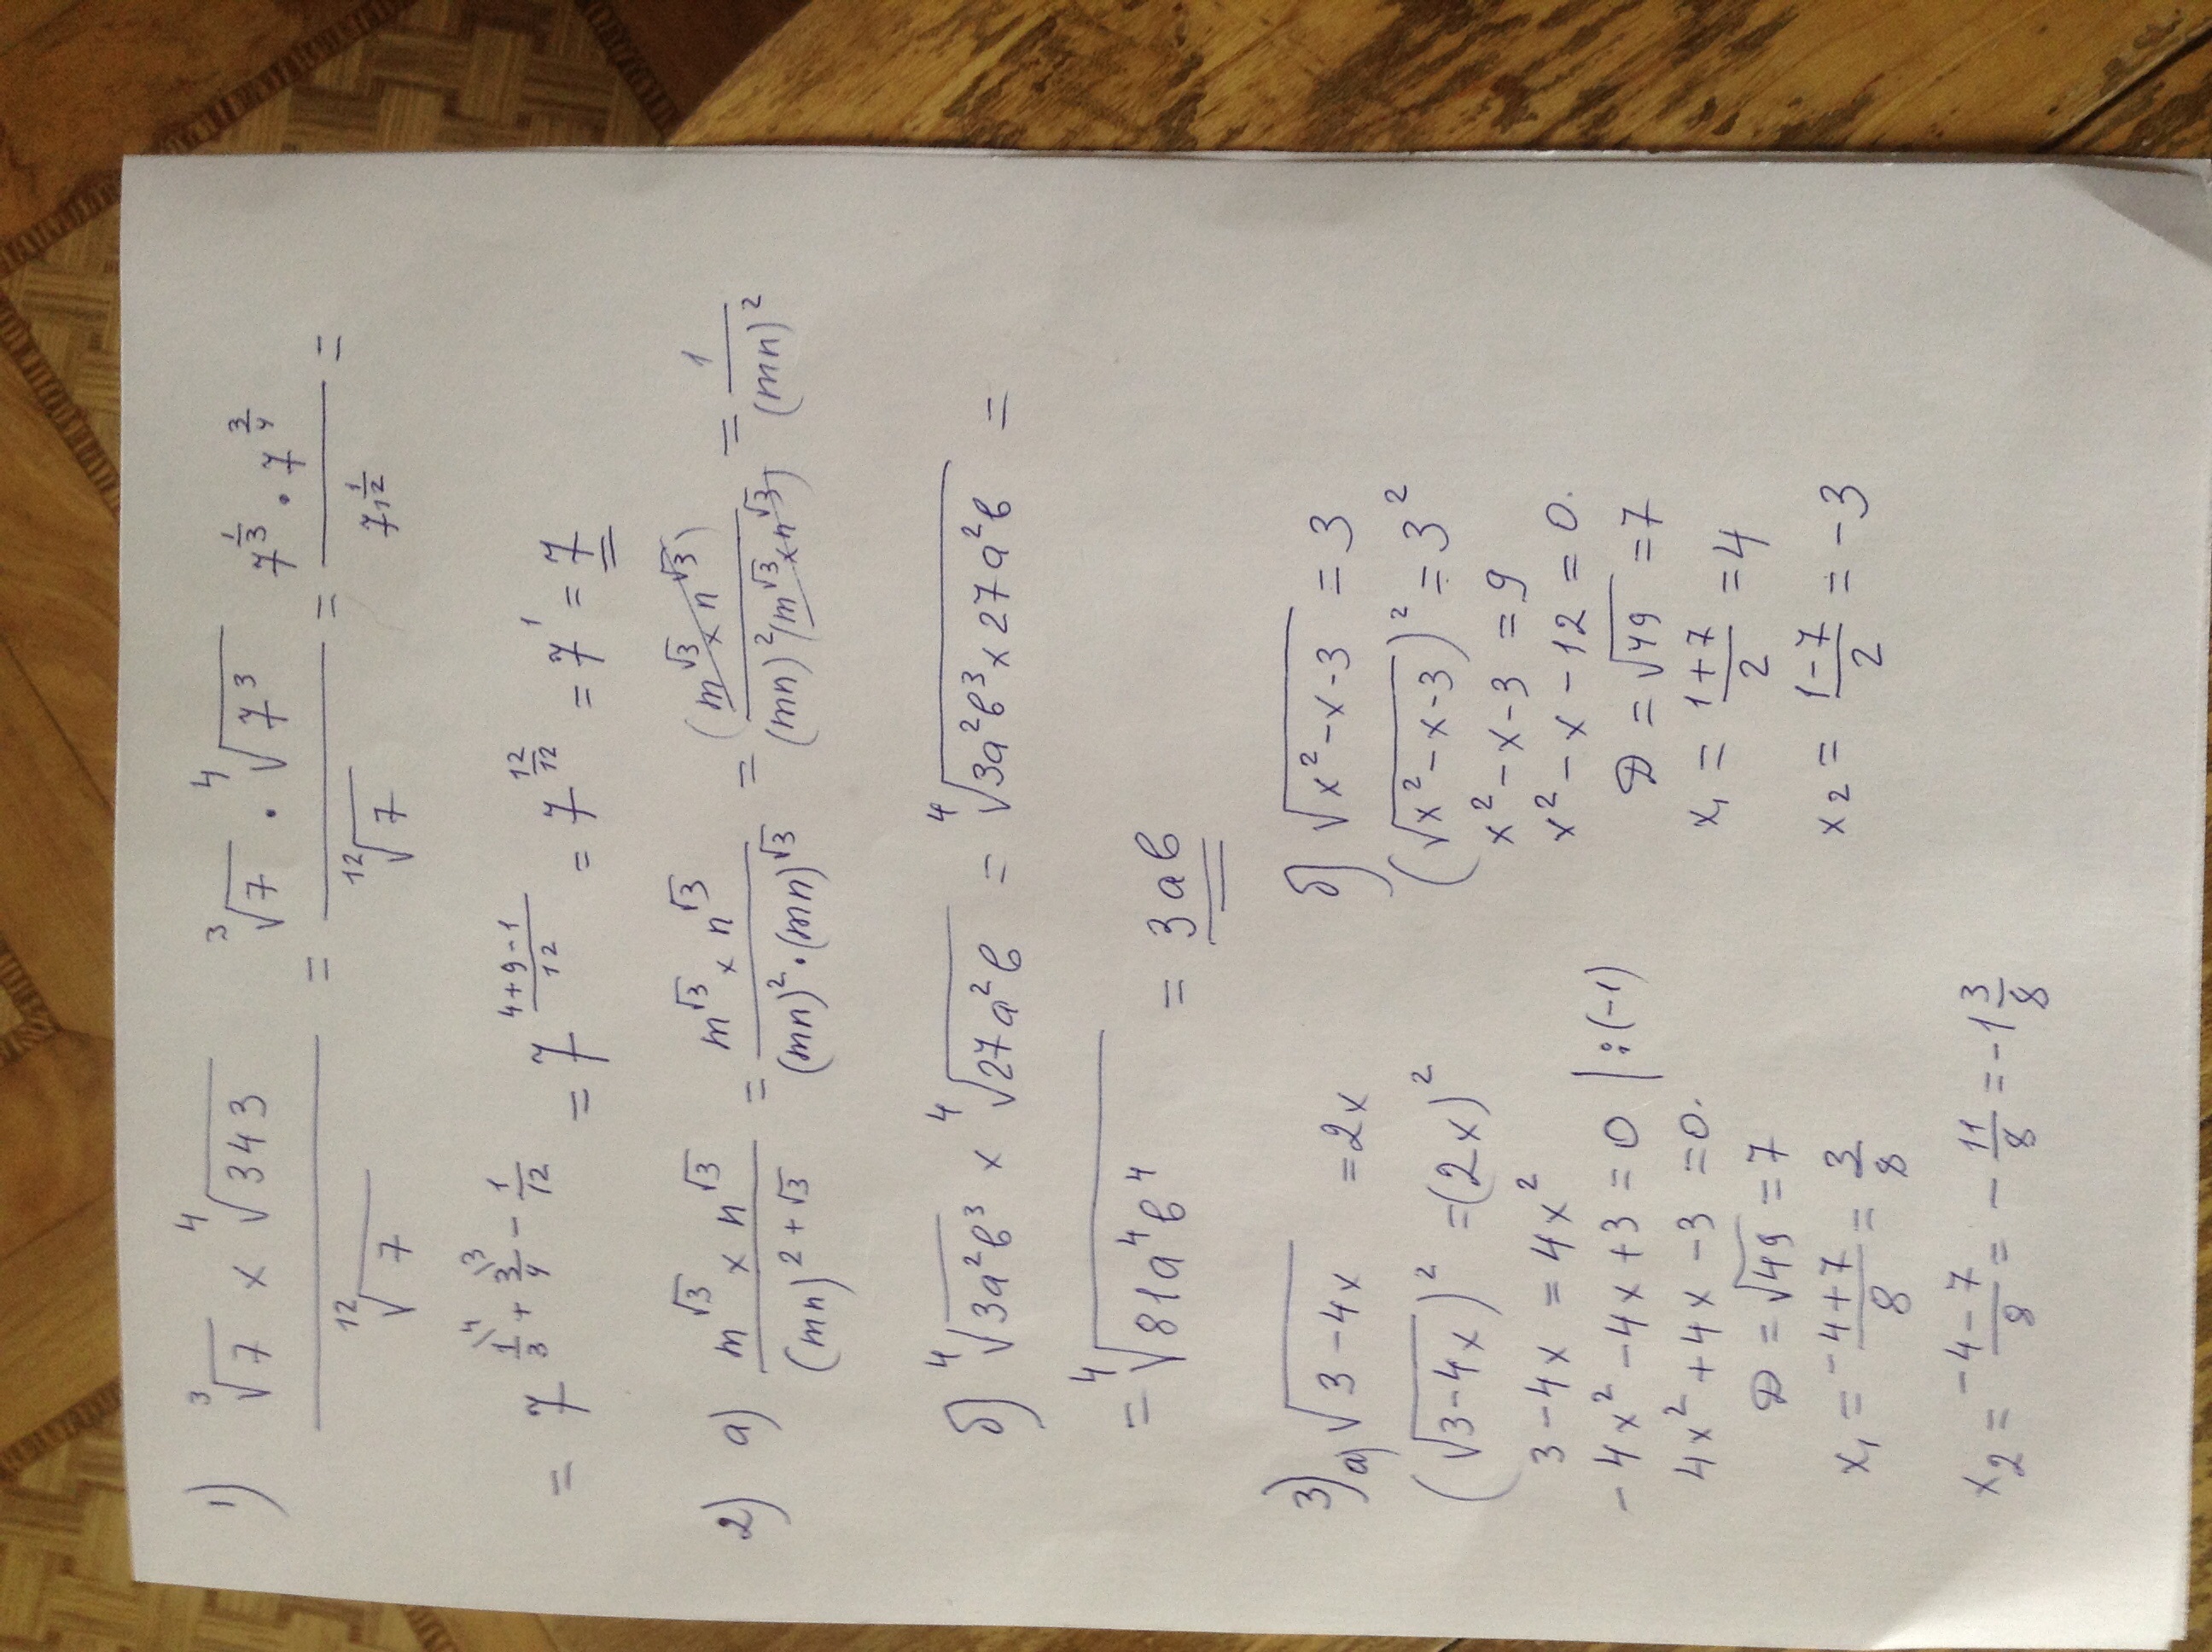 1) ∛7 x ∜343 / ¹²√7 = ∛7 · ∜7³ / ¹²√7 = 7^(1/3) · 7^(3/4) / 7^(1/12) =
= 7^(1\4/3 + 3\3/4 - 1/12) = 7^((4+9-1)/12) = 7^(12/12) = 7¹ = 7
2) а) m^√3 x n^√3 / (mn)^(2+√3) = m^√3 x n^√3 / (mn)² · (mn)^√3 = (m^√3 x n^√3) / (mn)² (m^√3 x n^√3) = 1 / (mn)²
б) ∜3a²b³ x ∜27a²b = ∜3a²b³ x 27a²b =
= ∜81a⁴b⁴ = 3ab
3) а) √3-4x = 2x
(√3-4x)² = (2x)²
3-4x = 4x²
-4x² -4x +3 = 0 |:(-1)
4x² +4x -3 = 0.
D = √49 = 7
x₁ = -4+7 / 8 = 3/8
x₂ = -4-7 / 8 = - 11/8 = -1 3/8
б) √x²-x-3 = 3
(√x²-x-3)² = 3²
x²-x-3 = 9
x²-x-12 = 0.
D = √49 = 7
x₁ = 1+7 / 2 = 4
x₂ = 1-7 / 2 = -3